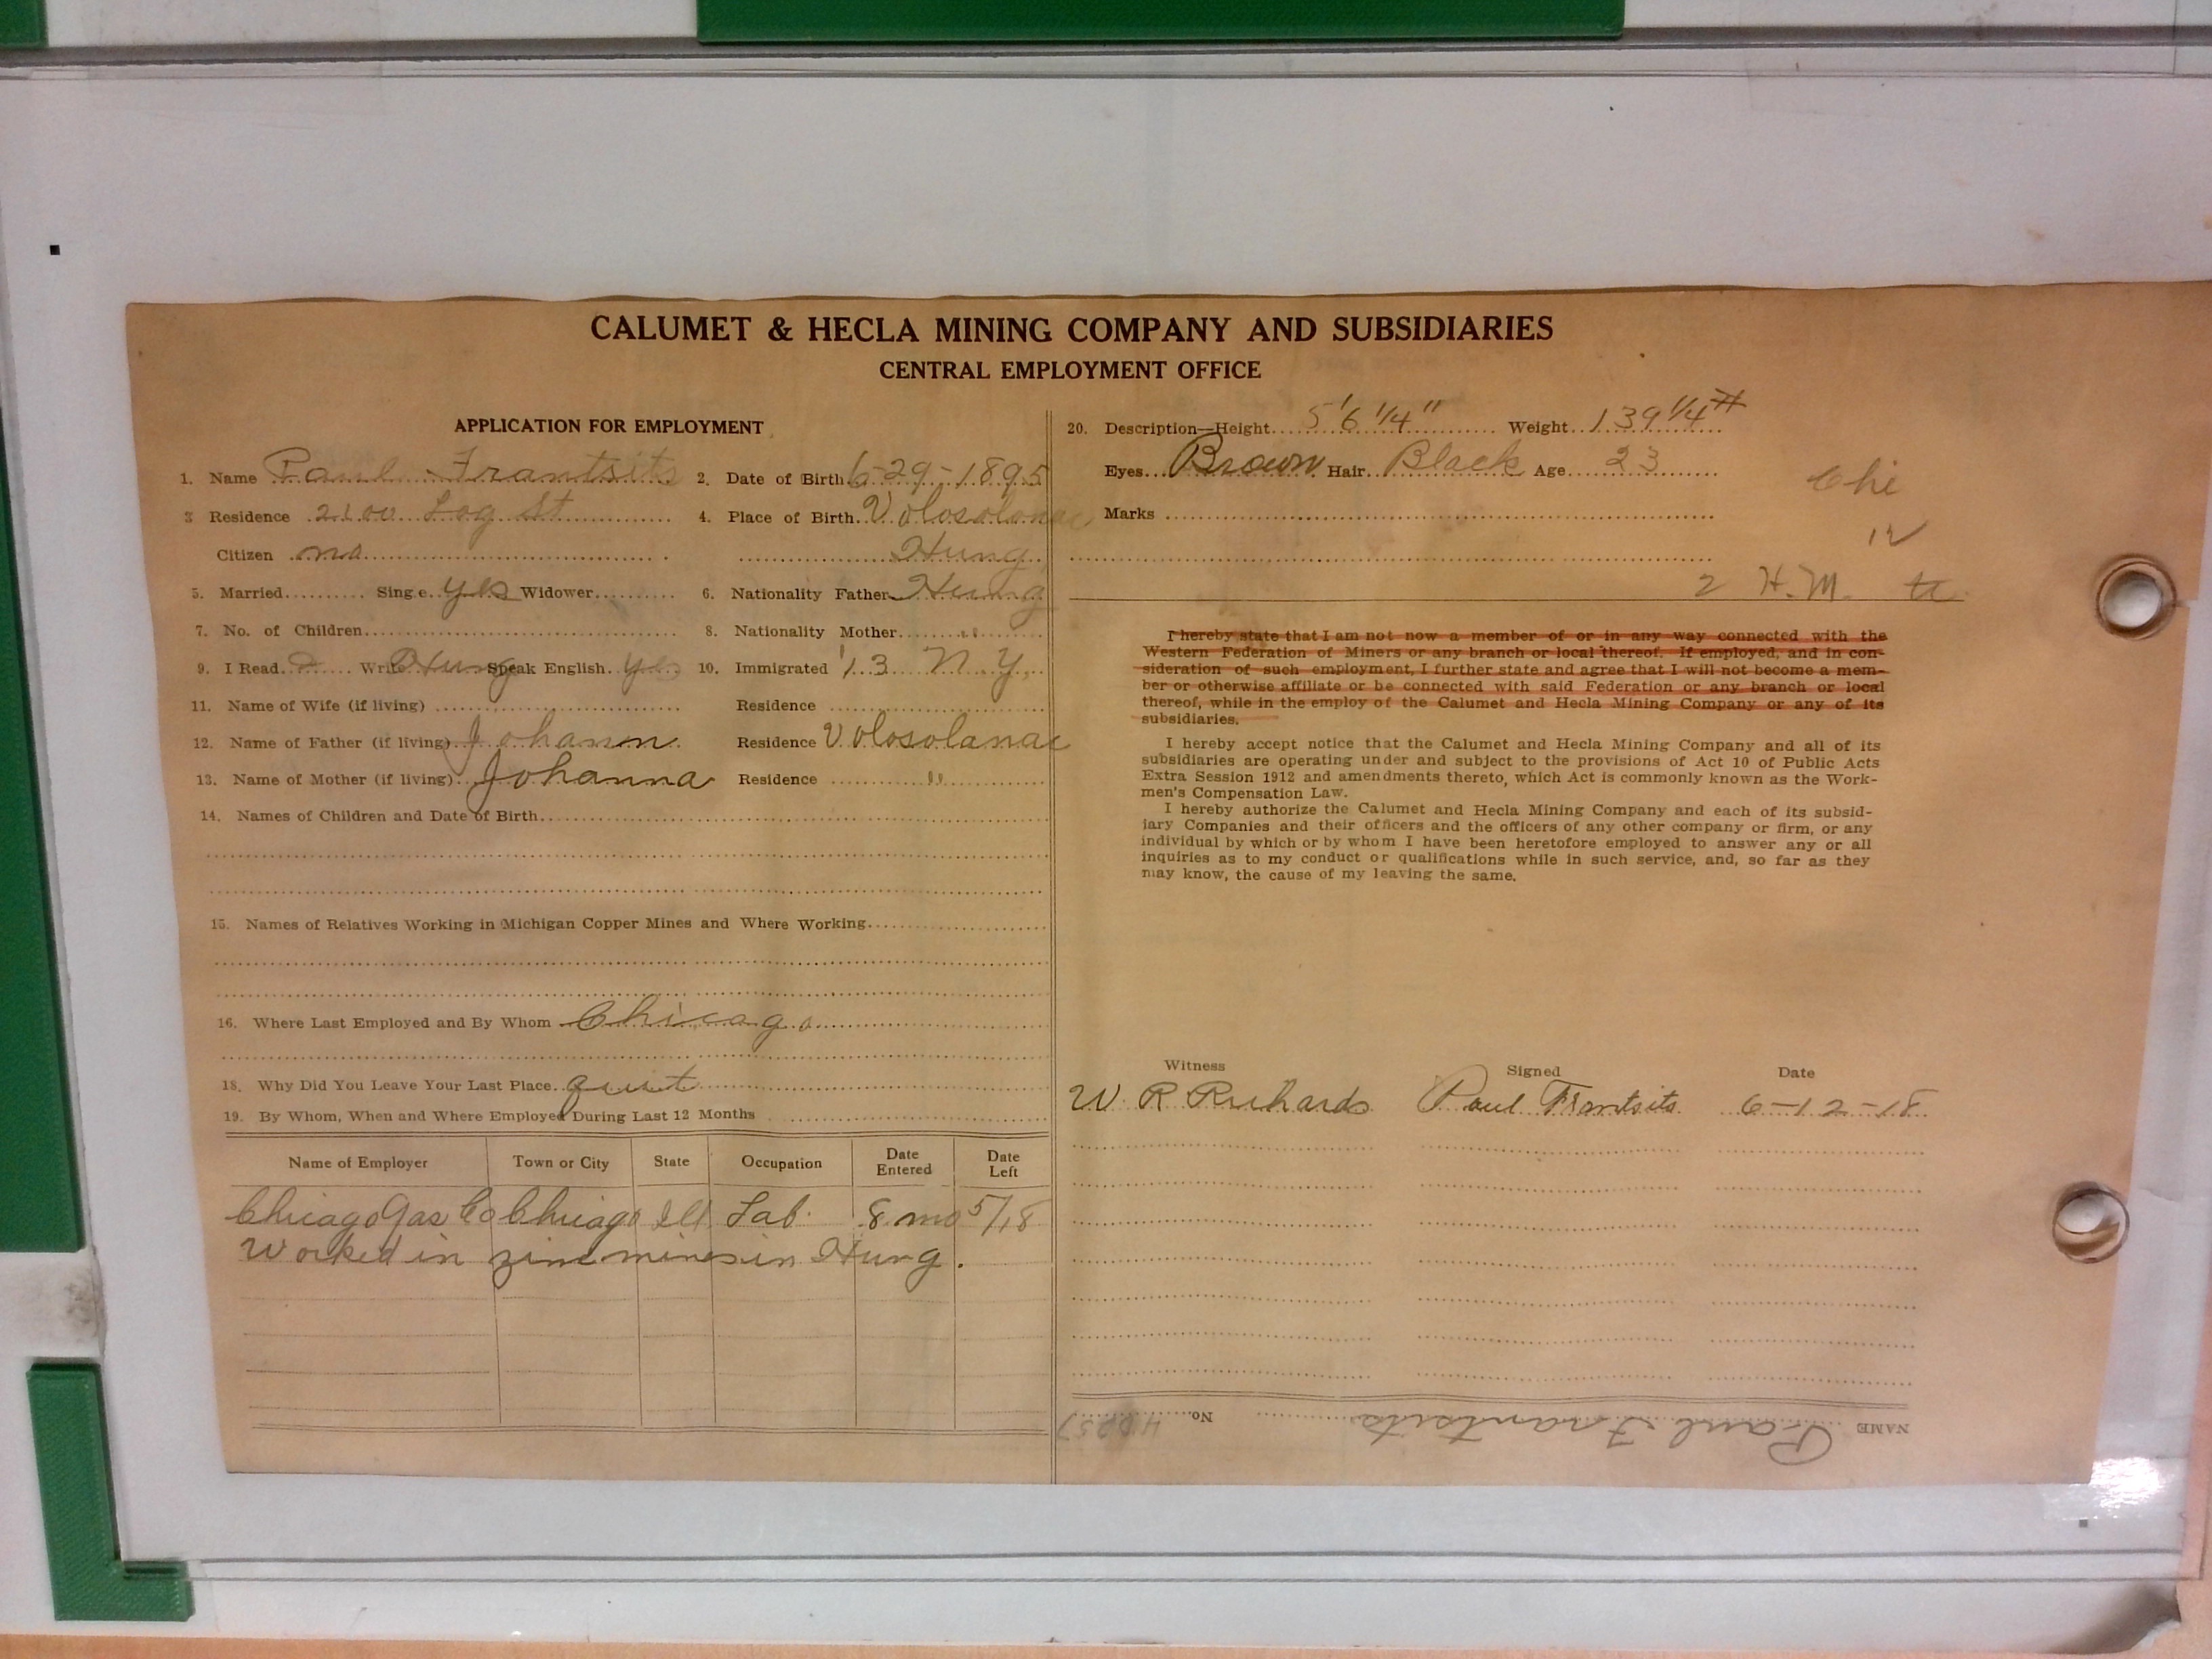 CALUMET & HECLA MINING COMPANY AND SUBSIDIARIES
CENTRAL EMPLOYMENT OFFICE
APPLICATION FOR EMPLOYMENT
1. Name Paul Frantsits 2. Date of Birth 6-29-1895
3 Residence 2100 Log St 4. Place of Birth Volosolanac
Citizen no Hung
5. Married Sing e yes Widower 6. Nationality Father Hung
7. No. of Children 8. Nationality Mother "
9. I Read Write Hung Speak English yes 10. Immigrated '13 N.Y.
11. Name of Wife (if living) Residence
12. Name of Father (if living) Johann Residence Volosolanac
13. Name of Mother (if living) Johanna Residence "
14. Names of Children and Date of Birth
15. Names of Relatives Working in Michigan Copper Mines and Where Working
16. Where Last Employed and By Whom Chicago
18. Why Did You Leave Your Last Place quit
19. By Whom, When and Where Employed During Last 12 Months
Name of Employer Town or City State Occupation Date Entered Date Left
Chicago Gas Co Chicago Ill Lab. 8 mo 5/18
Worked in zinc mines in Hung.
20. Description—Height 5'6 1/4" Weight 139 1/4 #
Eyes Brown Hair Black Age 23
Marks
Chi
12
2 H.M.
I hereby state that I am not now a member of or in any way connected with the
Western Federation of Miners or any branch or local thereof. If employed, and in con-
sideration of such employment, I further state and agree that I will not become a mem-
ber or otherwise affiliate or be connected with said Federation or any branch or local
thereof, while in the employ of the Calumet and Hecla Mining Company or any of its
subsidiaries.
I hereby accept notice that the Calumet and Hecla Mining Company and all of its
subsidiaries are operating under and subject to the provisions of Act 10 of Public Acts
Extra Session 1912 and amendments thereto, which Act is commonly known as the Work-
men's Compensation Law.
I hereby authorize the Calumet and Hecla Mining Company and each of its subsid-
iary Companies and their officers and the officers of any other company or firm, or any
individual by which or by whom I have been heretofore employed to answer any or all
inquiries as to my conduct or qualifications while in such service, and, so far as they
may know, the cause of my leaving the same.
Witness Signed Date
W. R Richards Paul Frantsits 6-12-18
NAME Paul Frantsits No.